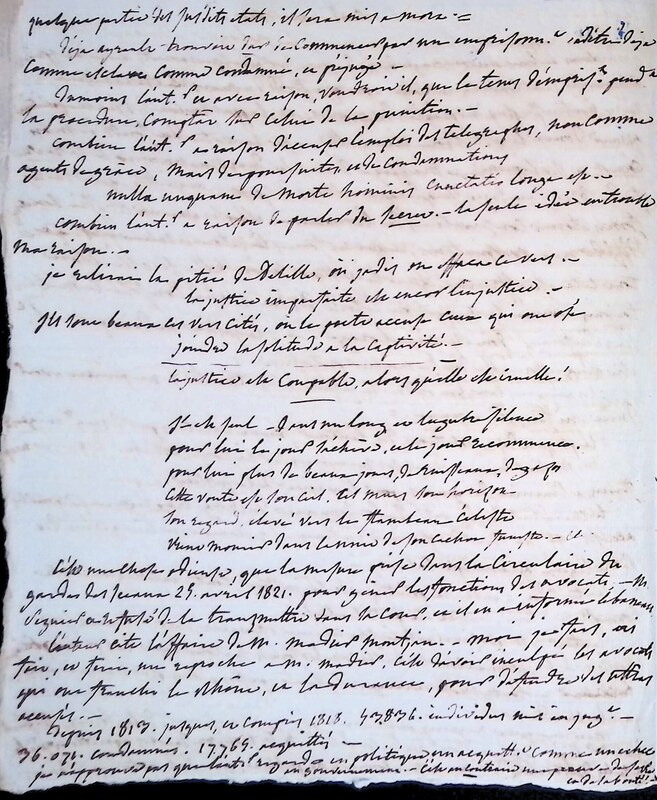 quelque partie des susdits etats, il sera mis a mort. =
déja agréable trouvoire de commencer par un emprisonn.t
comme esclave comme condamné, ce préjugé —
du moins l'aut.r a avec raison, voudroit il, que le tems d'empris.t pend.t
la procedure, compter sur celui de la punition. —
combien l'aut.r a raison d'accuser l'emploi des telegraphes, non comme
agents de grâce, mais de poursuites, et de condamnations
nulla unquam de morte hominis cunctatio longa est. —
combien l'aut.r a raison de parler du — la seule idée en trouble
ma raison. —
je relirais la pitié de Delille, où jadis on effaça ce vers. —
la justice imparfaite est encor l'injustice. —
Ils sont beaux ces vers cités, ou le poete accuse ceux qui ont osé
joindre la solitude a la captivité. —
la justice est coupable, alors qu'elle est cruelle!
Il est seul — dans un long et lugubre silence
pour lui le jour s'achève, et le jour recommence.
pour lui plus de beaux jours, de ruisseaux, de gazon
cette voute est son ciel, ces murs son horizon
son regard, élevé vers le flambeau céleste
vient mourir dans la nuit de son cachot funeste. —
C'est une chose odieuse, que la mesure prise dans la Circulaire du
garde des sceaux 29. avril 1821. pour gêner les fonctions des avocats. — M.
Séguier a refusé de la transmettre dans la cour, et il en a informé le bareau
L'auteur cite l'affaire de M. madier montjau. — moi je fais, ai
fait, et ferai, un reproche a M. madier, c'est d'avoir inculpé les avocats
qui ont franchi le Rhône, et la durance, pour defendre des
accusés. —
Depuis 1813. jusques, et compris 1818. 53,836. individus mis en jug.t —
36.071. condamnés. 17,765. acquittés —
je n'approuve pas que l'aut.r regarde en politique un acquitt.t comme un echec
au gouvernement. — c'est au contraire une preuve de sa
et de sa bonté. —